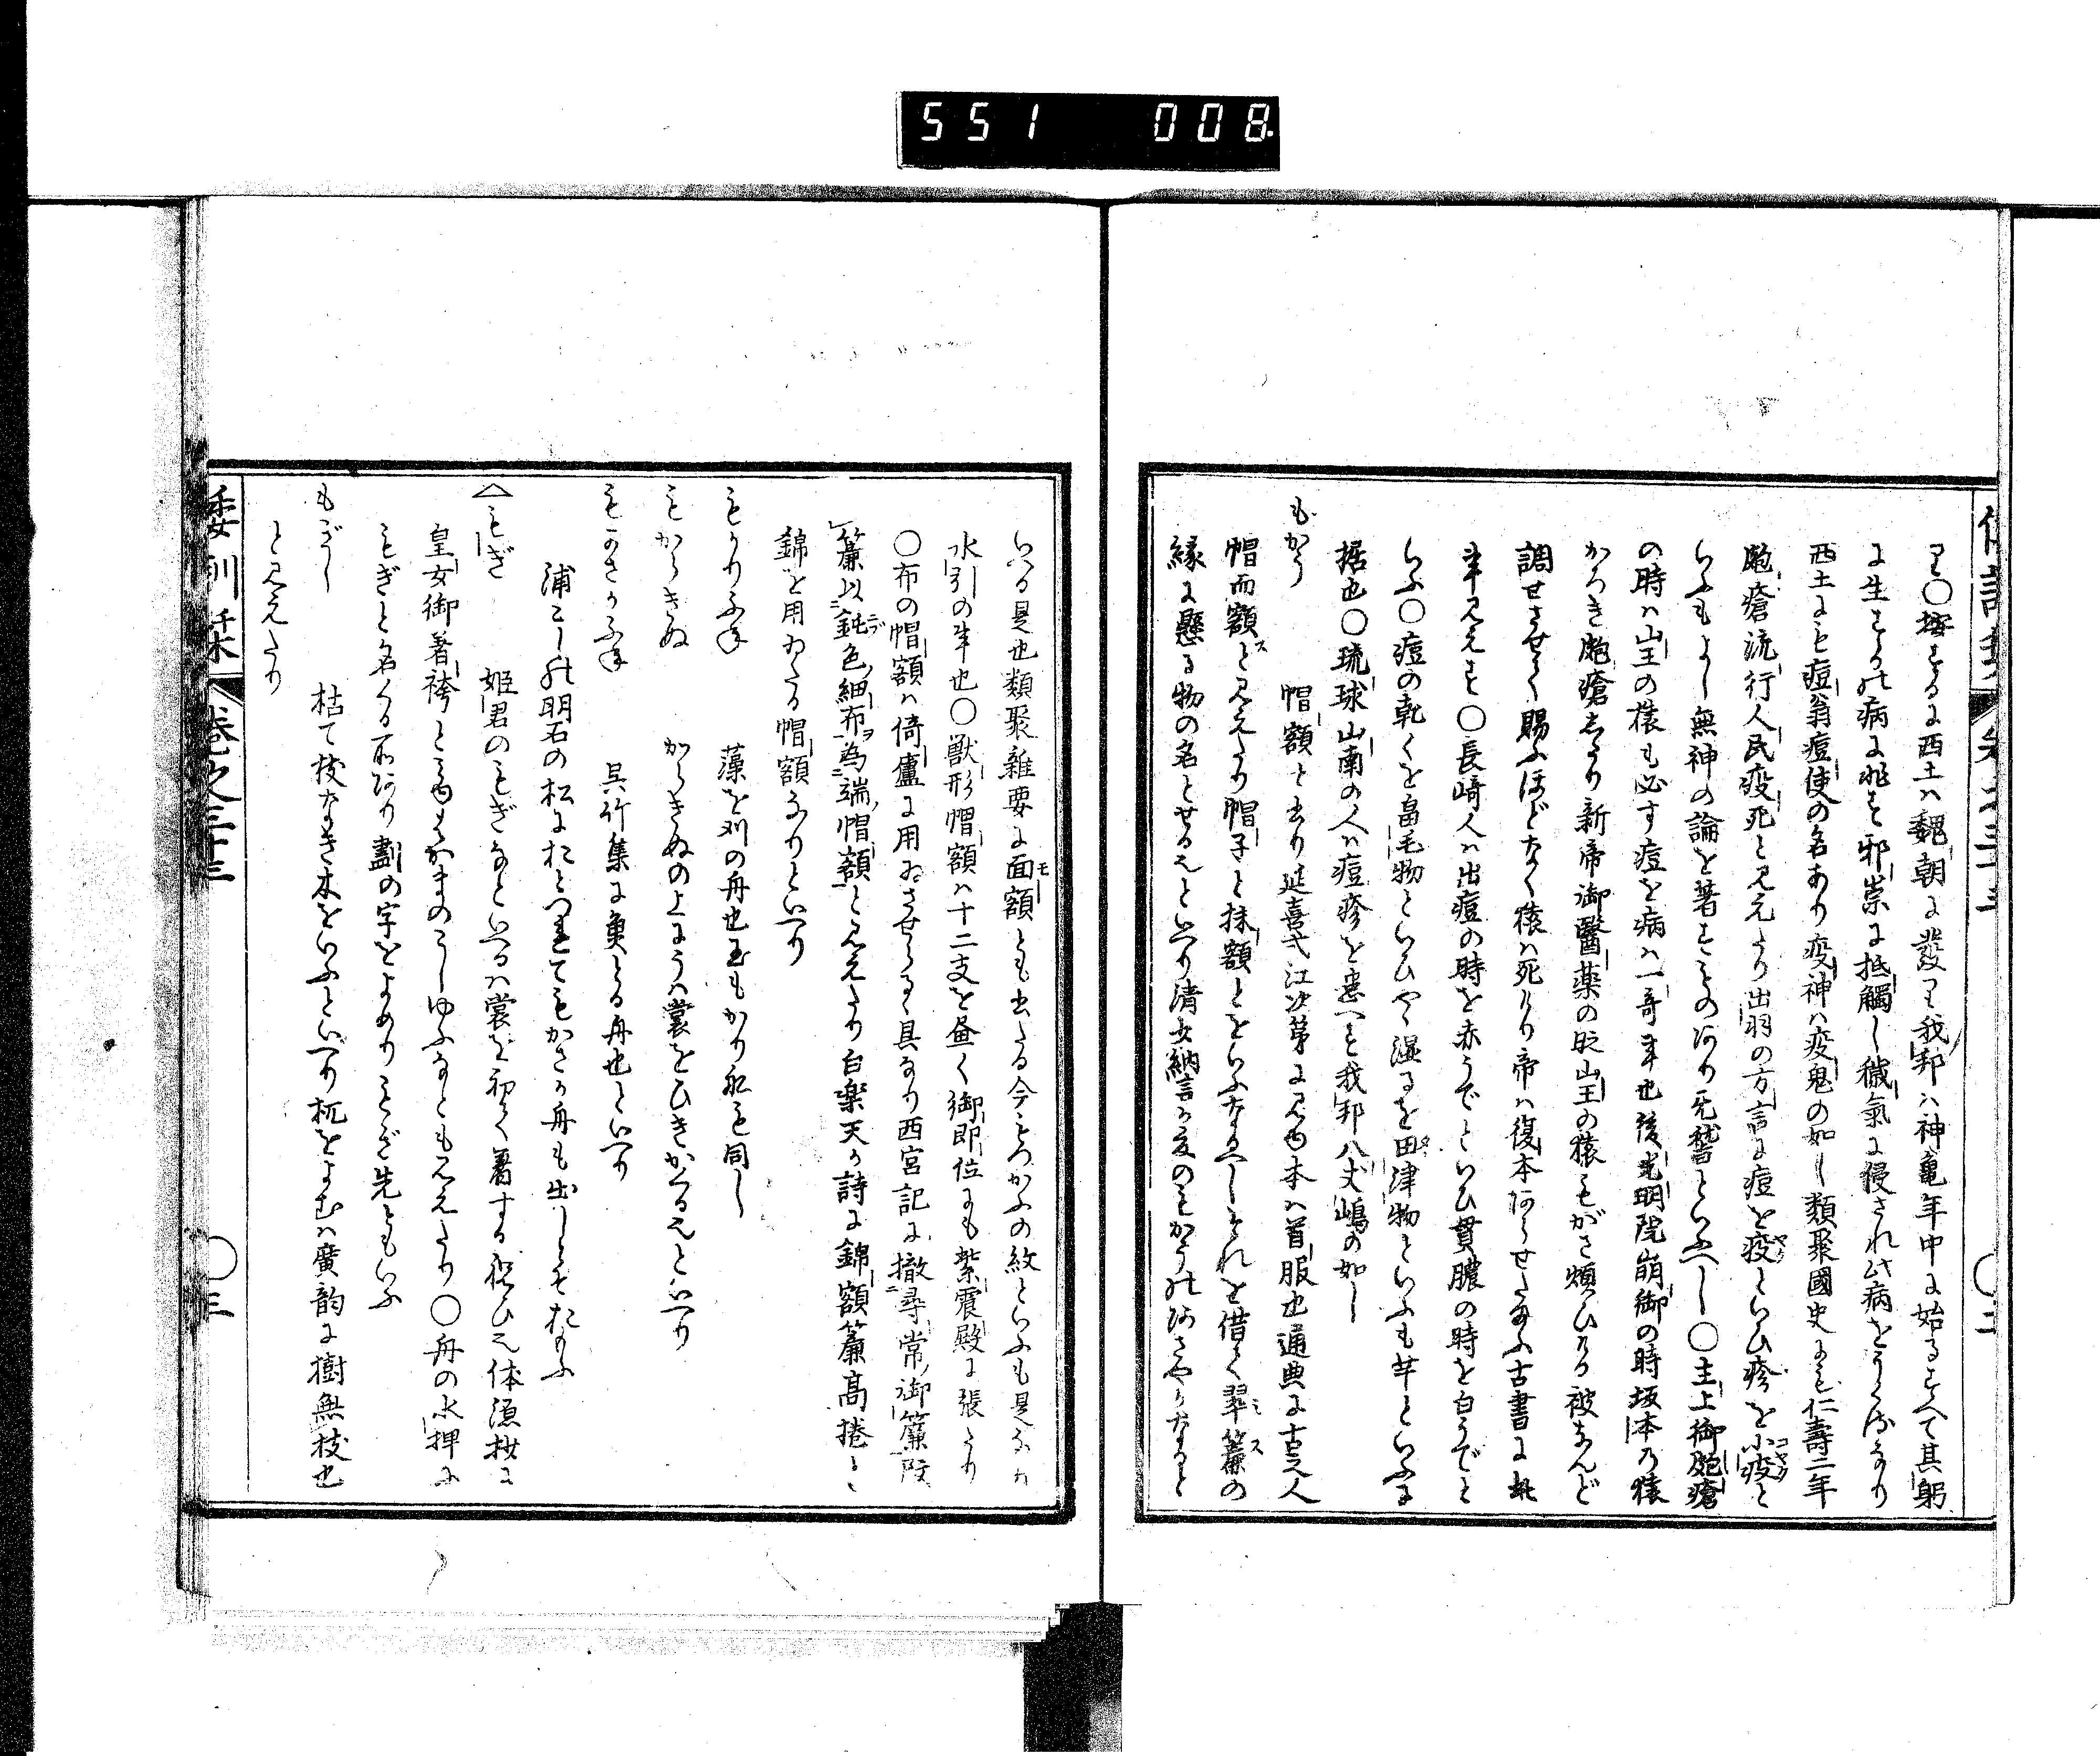 551 008
り○按するに西土ハ魏朝に發り我邦ハ神亀年中に始るすへて其躬
に生するの病に非す邪祟に抵觸し穢氣に侵され此病をうくるなり
西土にも痘翁痘使の名あり疫神ハ疫鬼の如し類聚國史にも仁壽二年
皰瘡流行人民疫死と見えたり出羽の方言に痘を疫といひ疹を小疫と
いふもよし無神の論を著すものあり无稽といふへし○主上御皰瘡
の時ハ山王の猿も必す痘を病ハ一奇事也後光明院崩御の時坂本乃猿
かろき皰瘡しけり新帝御醫薬の時山王の猿もがさ煩ひける被なんど
調せさせて賜ふほどなく猿ハ死けり帝ハ復本ならせたまふ古書に此
事見えす○長崎人ハ出痘の時を赤うでといひ貫膿の時を白うでと
いふ○痘の乾くを畠毛物といひやゝ湿るを田津物といふも芋といふに
据也○琉球山南の人ハ痘疹を患へす我邦八丈嶋の如し
もかう 帽額と書り延喜式江次第に見ゆ本ハ首服也通典に古之人
帽而額すと見えたり帽子と抹額とをいふなるへしそれを借て翠簾の
縁に懸る物の名とせるなりといへり清少納言か夏のもかうのあさやかなると
いへる是也類聚雜要に面額とも書たる今もつかふの紋といふも是なりハ
水引の事也○獣形帽額ハ十二支を畫く御即位にも紫震殿に張たり
○布の帽額ハ倚廬に用ゐさせらるゝ具なり西宮記に撤尋常御簾段
簾以鈍色細布為端帽額と見えたり白楽天か詩に錦額簾高捲と
錦を用ゐたる帽額なりといへり
もかりふね 藻を刈の舟也玉もかり舩も同し
もからきぬ からきぬの上にうハ裳をひきかくる也といへり
もかさかふね 呉竹集に魚とる舟也といへり
浦こしの明石の松におとつれてもかさか舟も出しとそおもふ
△もぎ 姫君のもぎなといへるハ裳を初て著する祝ひ也体源抄に
皇女御著袴とまゆもはかまのこしゆふなともみえたり○舟の水押に
もぎと名くる所あり劃の字をよめりもぎ先ともいふ
もぎし 枯て枝なき木をいふといへり杌をよむハ廣韵に樹無枝也
と見えたり
倭訓栞 巻之三十三 ○三